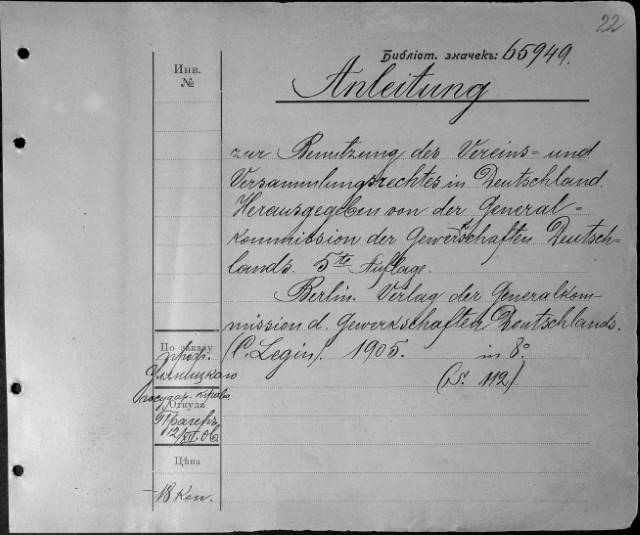 22
Библіот. значекъ: 65949.
Инв.
№
Anleitung
zur Benutzung des Vereins= und
Versammlungsrechtes in Deutschland.
Herausgegeben von der General=
kommission der Gewerkschaften Deutsch-
lands. 5te Auflage.
Berlin. Verlag der Generalkom-
mission d. Gewerkschaften Deutschlands.
(C. Legin). 1905. in 8°
(S. 112)
По заказу
проф.
Откуда
12/XII.06
Цѣна
18 коп.